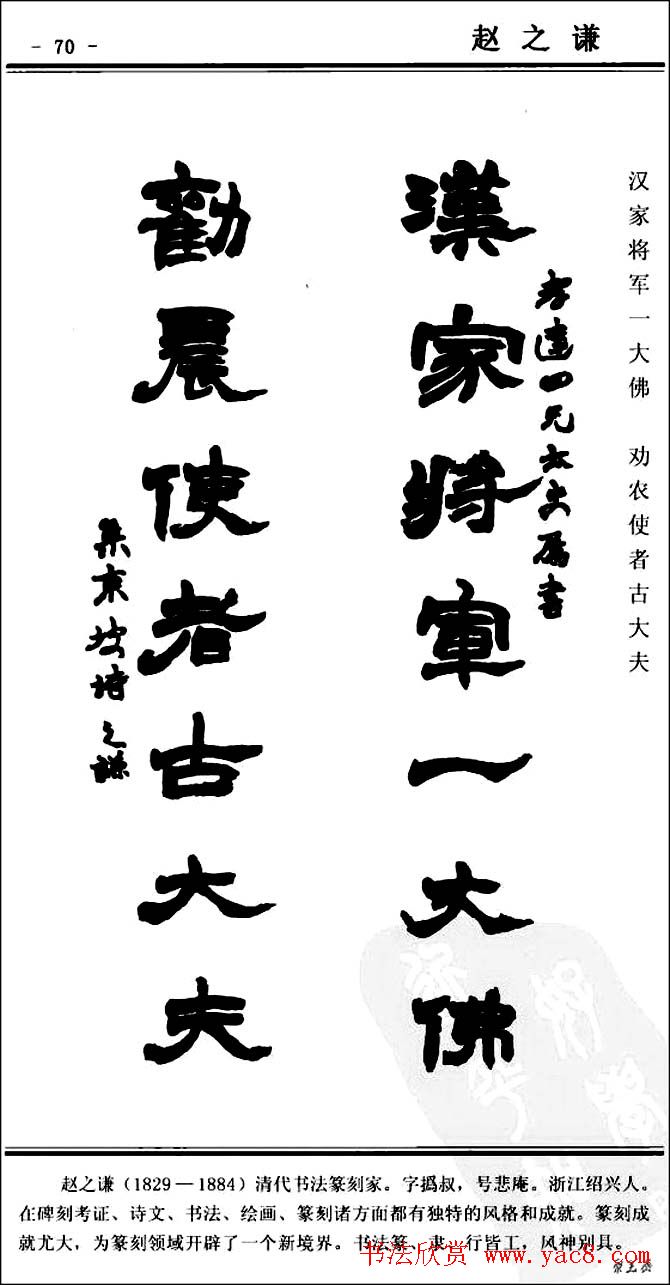 - 70 -
赵之谦
汉家将军一大佛 劝农使者古大夫
漢家將軍一大佛
四兄太史属書
勸農使者古大夫
集東坡詩 之謙
赵之谦（1829—1884）清代书法篆刻家。字撝叔，号悲庵。浙江绍兴人。
在碑刻考证、诗文、书法、绘画、篆刻诸方面都有独特的风格和成就。篆刻成
就尤大，为篆刻领域开辟了一个新境界。书法篆、隶、行皆工，风神别具。
书法欣赏 www.yac8.com